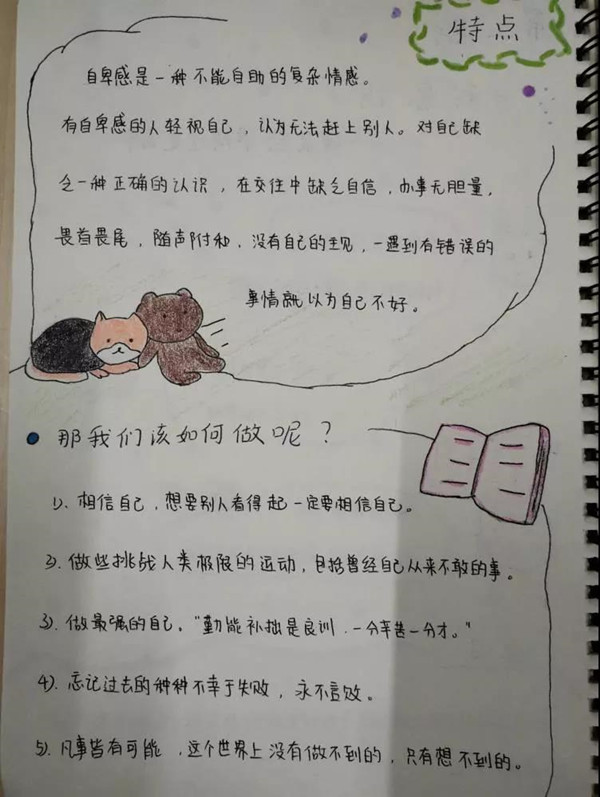 特点
自卑感是一种不能自助的复杂情感。
有自卑感的人轻视自己,认为无法赶上别人。对自己缺
乏一种正确的认识,在交往中缺乏自信,办事无胆量,
畏首畏尾,随声附和,没有自己的主见,一遇到有错误的
事情就以为自己不好。
那我们该如何做呢?
1)、相信自己,想要别人看得起一定要相信自己。
2).做些挑战人类极限的运动,包括曾经自己从来不敢的事。
3).做最强的自己。"勤能补拙是良训,一分辛苦一分才。"
4).忘记过去的种种不幸于失败,永不言败。
5).凡事皆有可能,这个世界上没有做不到的,只有想不到的。